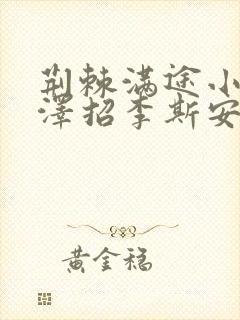 荆棘满途小
泽招李斯安
黄金稳